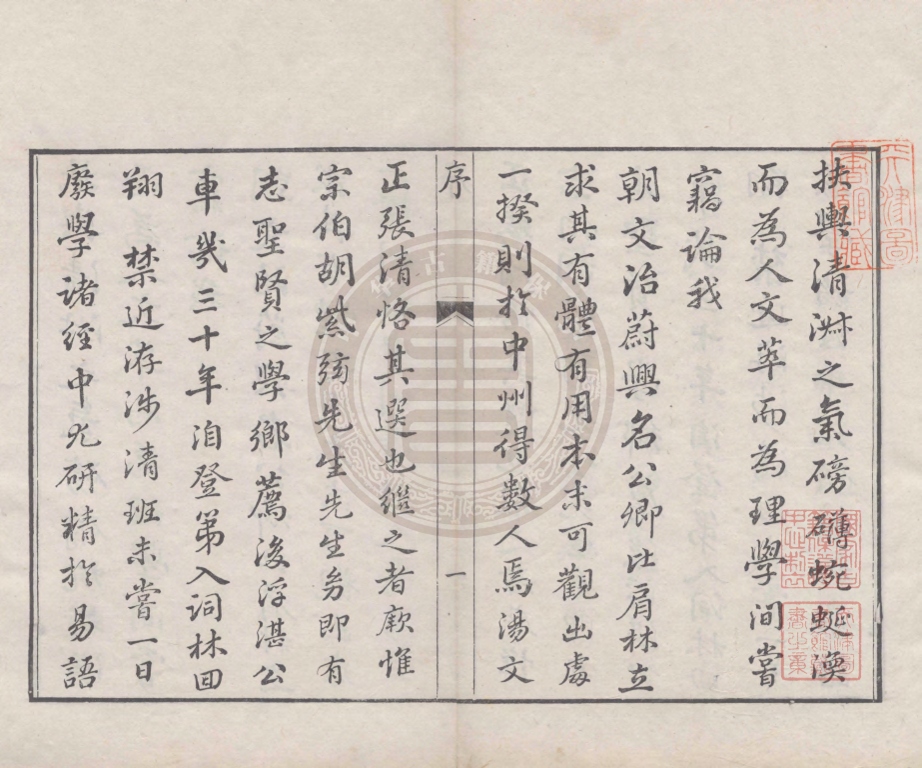 扶輿清淑之氣磅礡蜿蜒渙
而為人文萃而為理學間嘗
竊論我
朝文治蔚興名公卿比肩林立
求其有體有用本末可觀出處
一揆則於中州得數人焉湯文
序 一
正張清恪其選也繼之者厥惟
宗伯胡紫弦先生先生多即有
志聖賢之學鄉薦後浮湛公
車幾三十年洎登第入詞林回
翔 禁近洊涉清班未嘗一日
廢學諸經中尤研精於易語
天津圖
書館藏